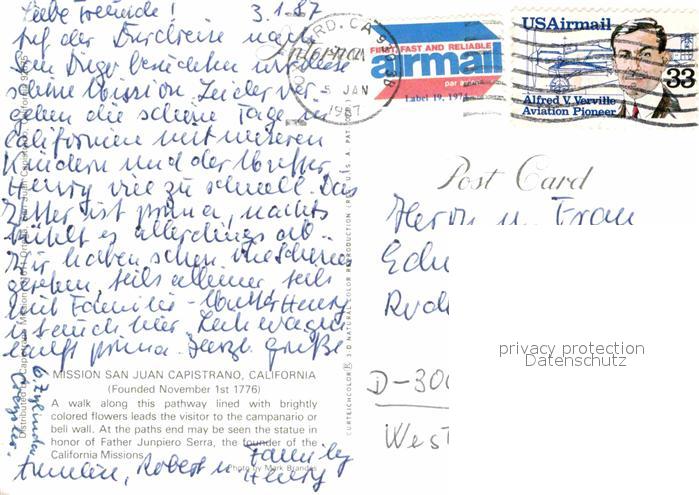 Liebe Freunde! 3.1.87
auf der Durchreise nach
San Diego besichten wir diese
schöne Mission. Leider ver-
gehen die schöne Tage in
Californien mit unseren
Kindern und der
Henry viel zu schnell. Das
Wetter ist prima, nachts
kühlt es allerdings ab.
Wir haben schon viel Schönes
gesehen, teils alleine, teils
mit Familie - Mutter Henry
ist auch hier. Leihwagen
läuft prima. Herzl. Grüße
6. Zylinder
MISSION SAN JUAN CAPISTRANO, CALIFORNIA
(Founded November 1st 1776)
A walk along this pathway lined with brightly
colored flowers leads the visitor to the campanario or
bell wall. At the paths end may be seen the statue in
honor of Father Junpiero Serra, the founder of the
California Missions.
Photo by Mark Brandes
Annelie, Robert u. Family
Henry
CURTEICHCOLOR® 3-D NATURAL COLOR REPRODUCTION (REG'D U.S.A. PAT. OFF.)
OXNARD, CA
5 JAN
1987
FIRST, FAST AND RELIABLE
airmail
par avion
Label 19, 1974
USAirmail
33
Alfred V. Verville
Aviation Pioneer
Post Card
Herrn u. Frau
Edu
Rud
D-300
West
privacy protection
Datenschutz